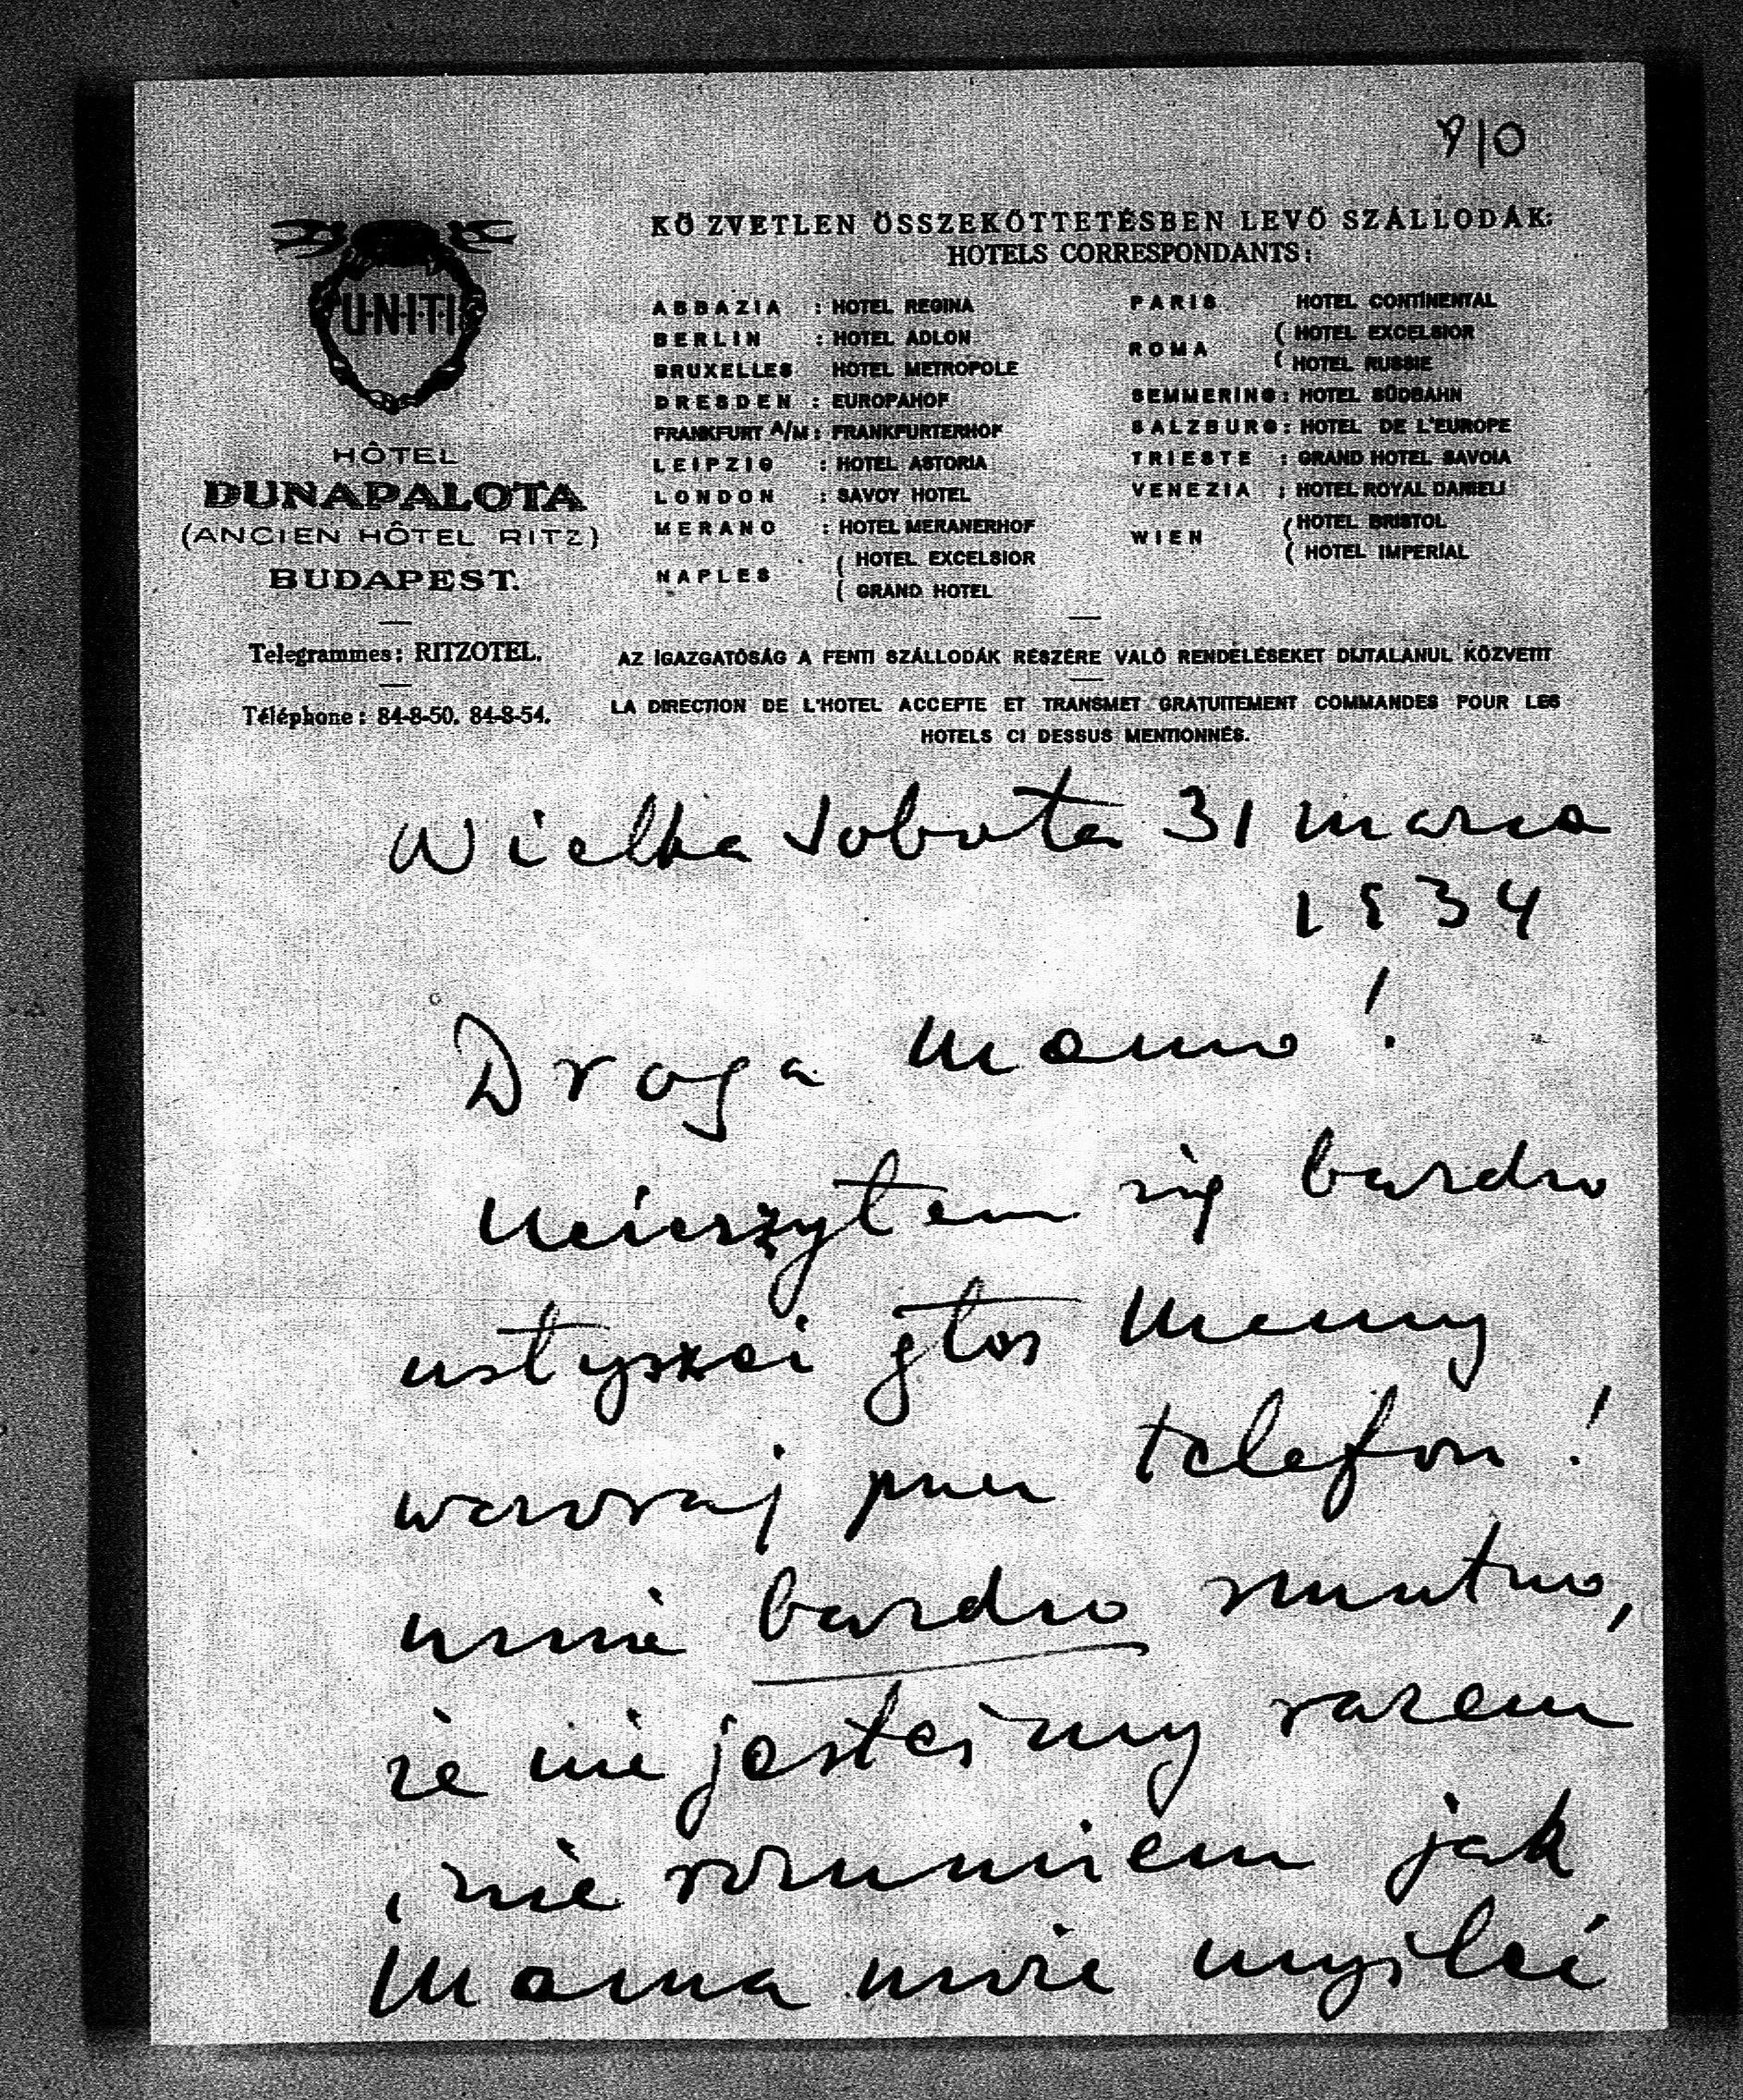 910
U·N·I·T·I
HÔTEL
DUNAPALOTA
(ANCIEN HÔTEL RITZ)
BUDAPEST.
Telegrammes: RITZOTEL.
Téléphone: 84-8-50. 84-8-54.
KÖZVETLEN ÖSSZEKÖTTETÉSBEN LEVŐ SZÁLLODÁK:
HOTELS CORRESPONDANTS:
ABBAZIA : HOTEL REGINA
BERLIN : HOTEL ADLON
BRUXELLES HOTEL METROPOLE
DRESDEN : EUROPAHOF
FRANKFURT A/M : FRANKFURTERHOF
LEIPZIG : HOTEL ASTORIA
LONDON : SAVOY HOTEL
MERANO : HOTEL MERANERHOF
NAPLES ( HOTEL EXCELSIOR
( GRAND HOTEL
PARIS HOTEL CONTINENTAL
ROMA ( HOTEL EXCELSIOR
( HOTEL RUSSIE
SEMMERING : HOTEL SÜDBAHN
SALZBURG : HOTEL DE L'EUROPE
TRIESTE : GRAND HOTEL SAVOIA
VENEZIA : HOTEL ROYAL DANIELI
WIEN ( HOTEL BRISTOL
( HOTEL IMPERIAL
AZ IGAZGATÓSÁG A FENTI SZÁLLODÁK RÉSZÉRE VALÓ RENDELÉSEKET DIJTALANUL KÖZVETIT
LA DIRECTION DE L'HOTEL ACCEPTE ET TRANSMET GRATUITEMENT COMMANDES POUR LES
HOTELS CI DESSUS MENTIONNÉS.
Wielka Sobota 31 marca
1934
Droga Mamo!
Ucieszyłem się bardzo
usłyszeć głos Mamy
wczoraj przez telefon!
mnie bardzo smutno,
że nie jesteśmy razem
i nie rozumiem jak
Mama może myśleć